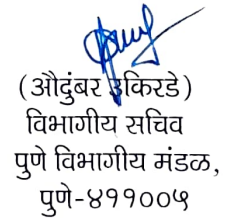 (औदुंबर उकिरडे)
विभागीय सचिव
पुणे विभागीय मंडळ,
पुणे-४११००५